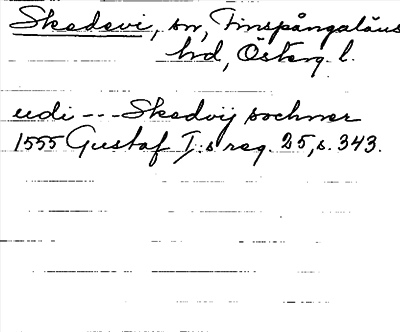 Skedevi, sn, Finspångaläns
hd, Österg. l.
udi --- Skedvij sochner
1555 Gustaf I:s reg. 25, s. 343.